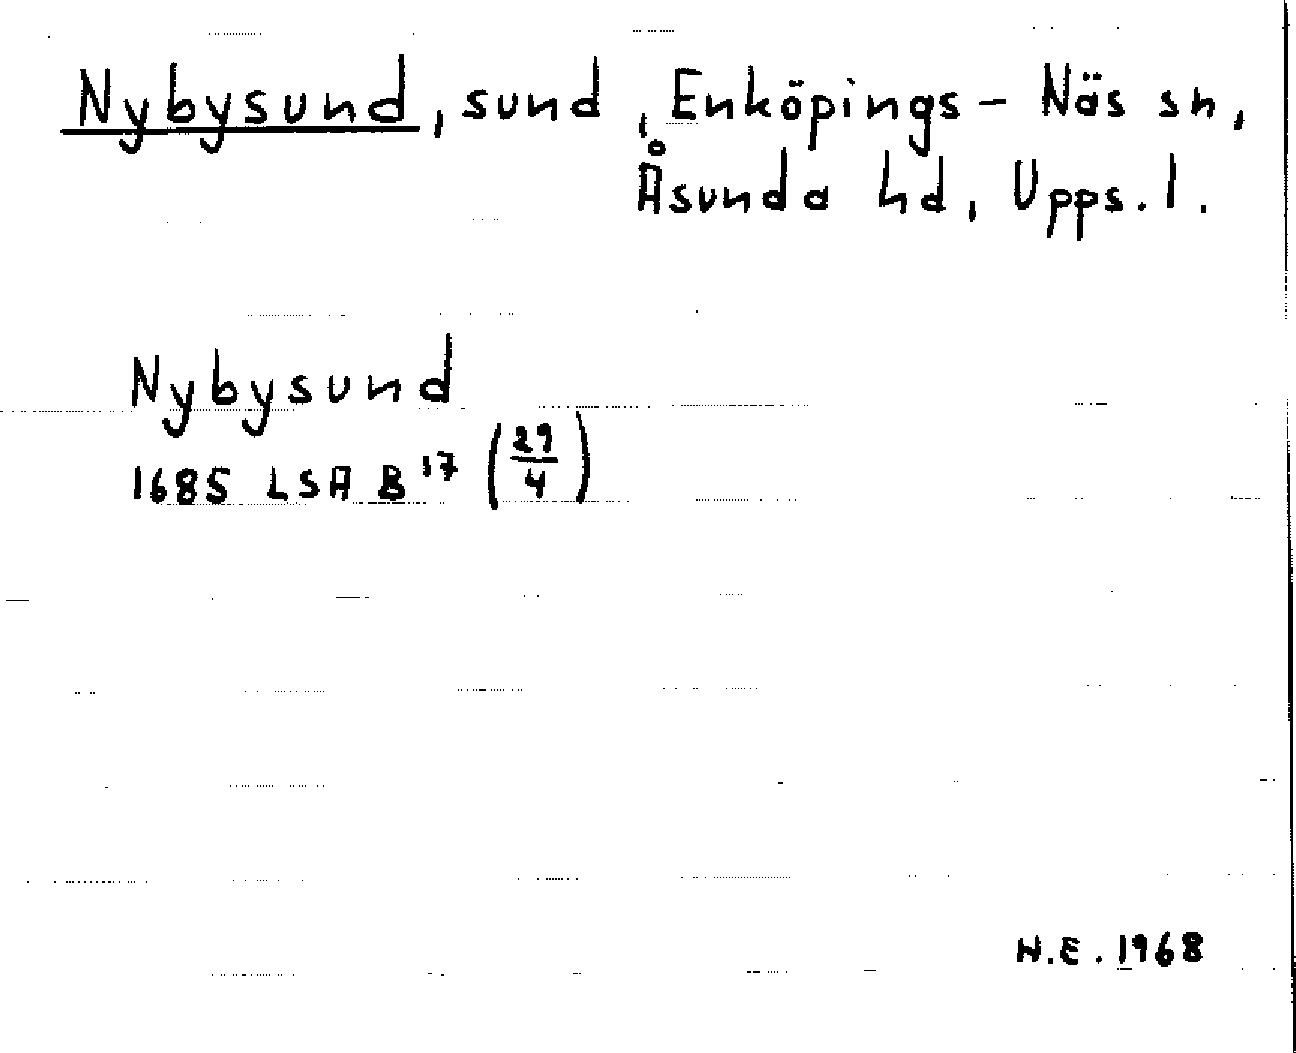 Nybysund, sund, Enköpings-Näs sn,
Åsunda hd, Upps. l.
Nybysund
1685 LSA B¹⁷ (29/4)
H.E. 1968